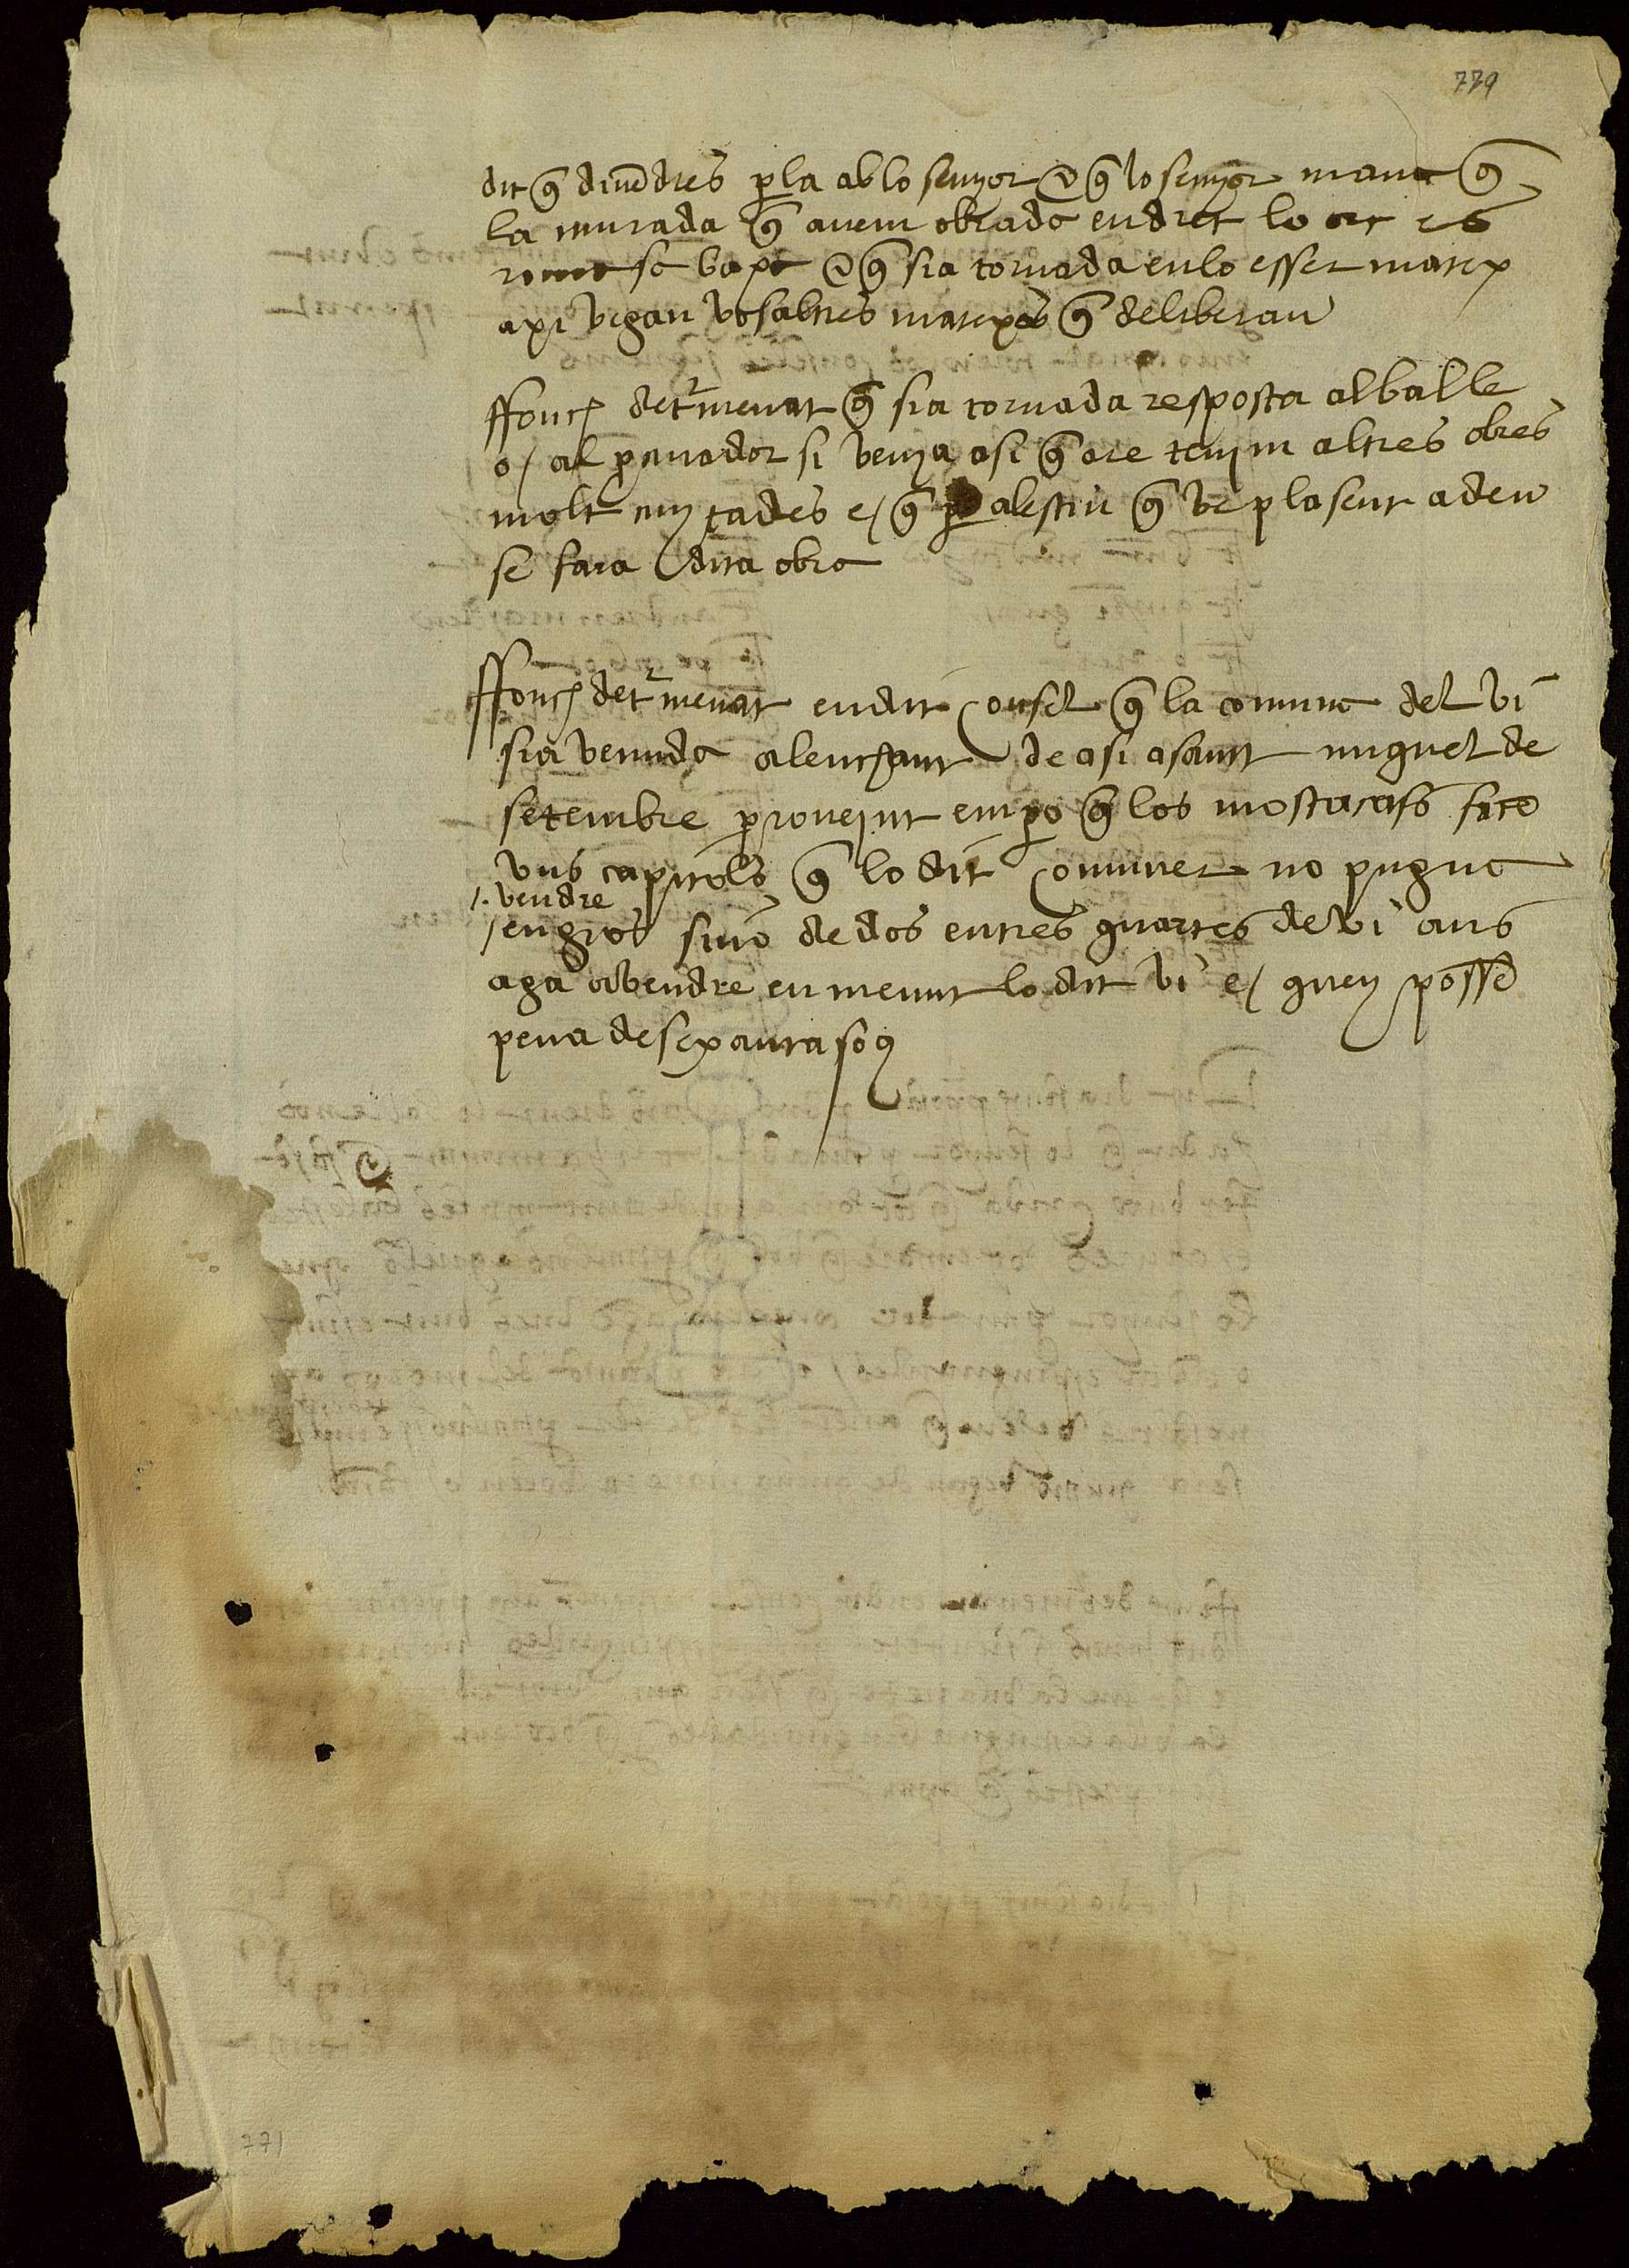 779
dit q̃ diuẽdres p̱la ab lo senyor e q̃ lo senyor mana q̃
la murada q̃ auem obrada endret lo
se baxe e q̃ sia tornada en lo esser matex
axi vegau vosaltres matexos q̃ deliberau
ffonch det̃menat q̃ sia tornada resposta al balle
o / al p̱curador si venia asi q̃ are tenim altres obres
molt cuytades e / q̃ p̱ al estiu q̃ ve plasent a deu
se fara dita obra
ffonch det̃menat en dit consel q̃ la comuna del vi
sia venuda al encant de asi a sant miguel de
setembre p̱roueint emp̱o q̃ los mostacafs face
vns capitols q̃ lo dit comuner no pugue
/. vendre
/ engros sinó de dos en tres quartes de vi ans
aga a vendre en menut lo dit vi e / quey posse
pena de sexanta soǫ
771